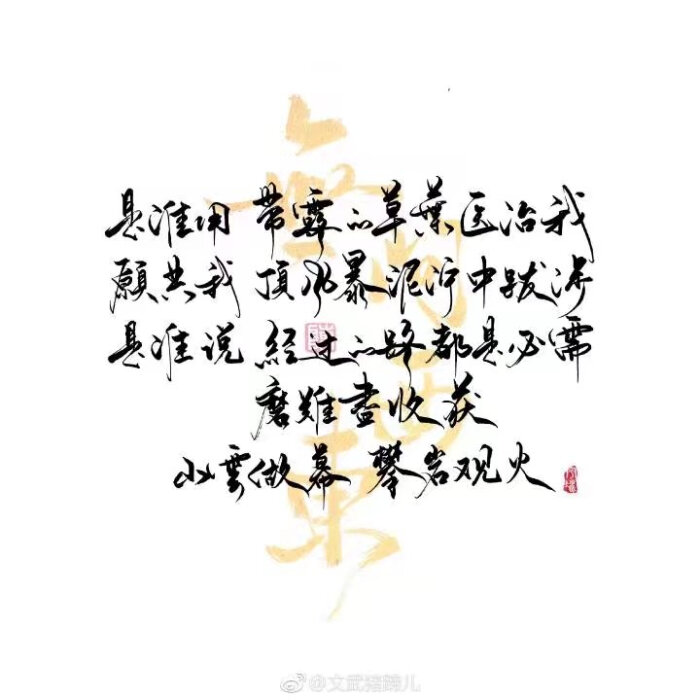 無問西東
是谁用 带露的草葉医治我
願共我 頂风暴泥泞中跋涉
是谁说 經过的路都是必需
磨難盡收获
山雲做幕 攀岩观火
@文武猪蹄儿